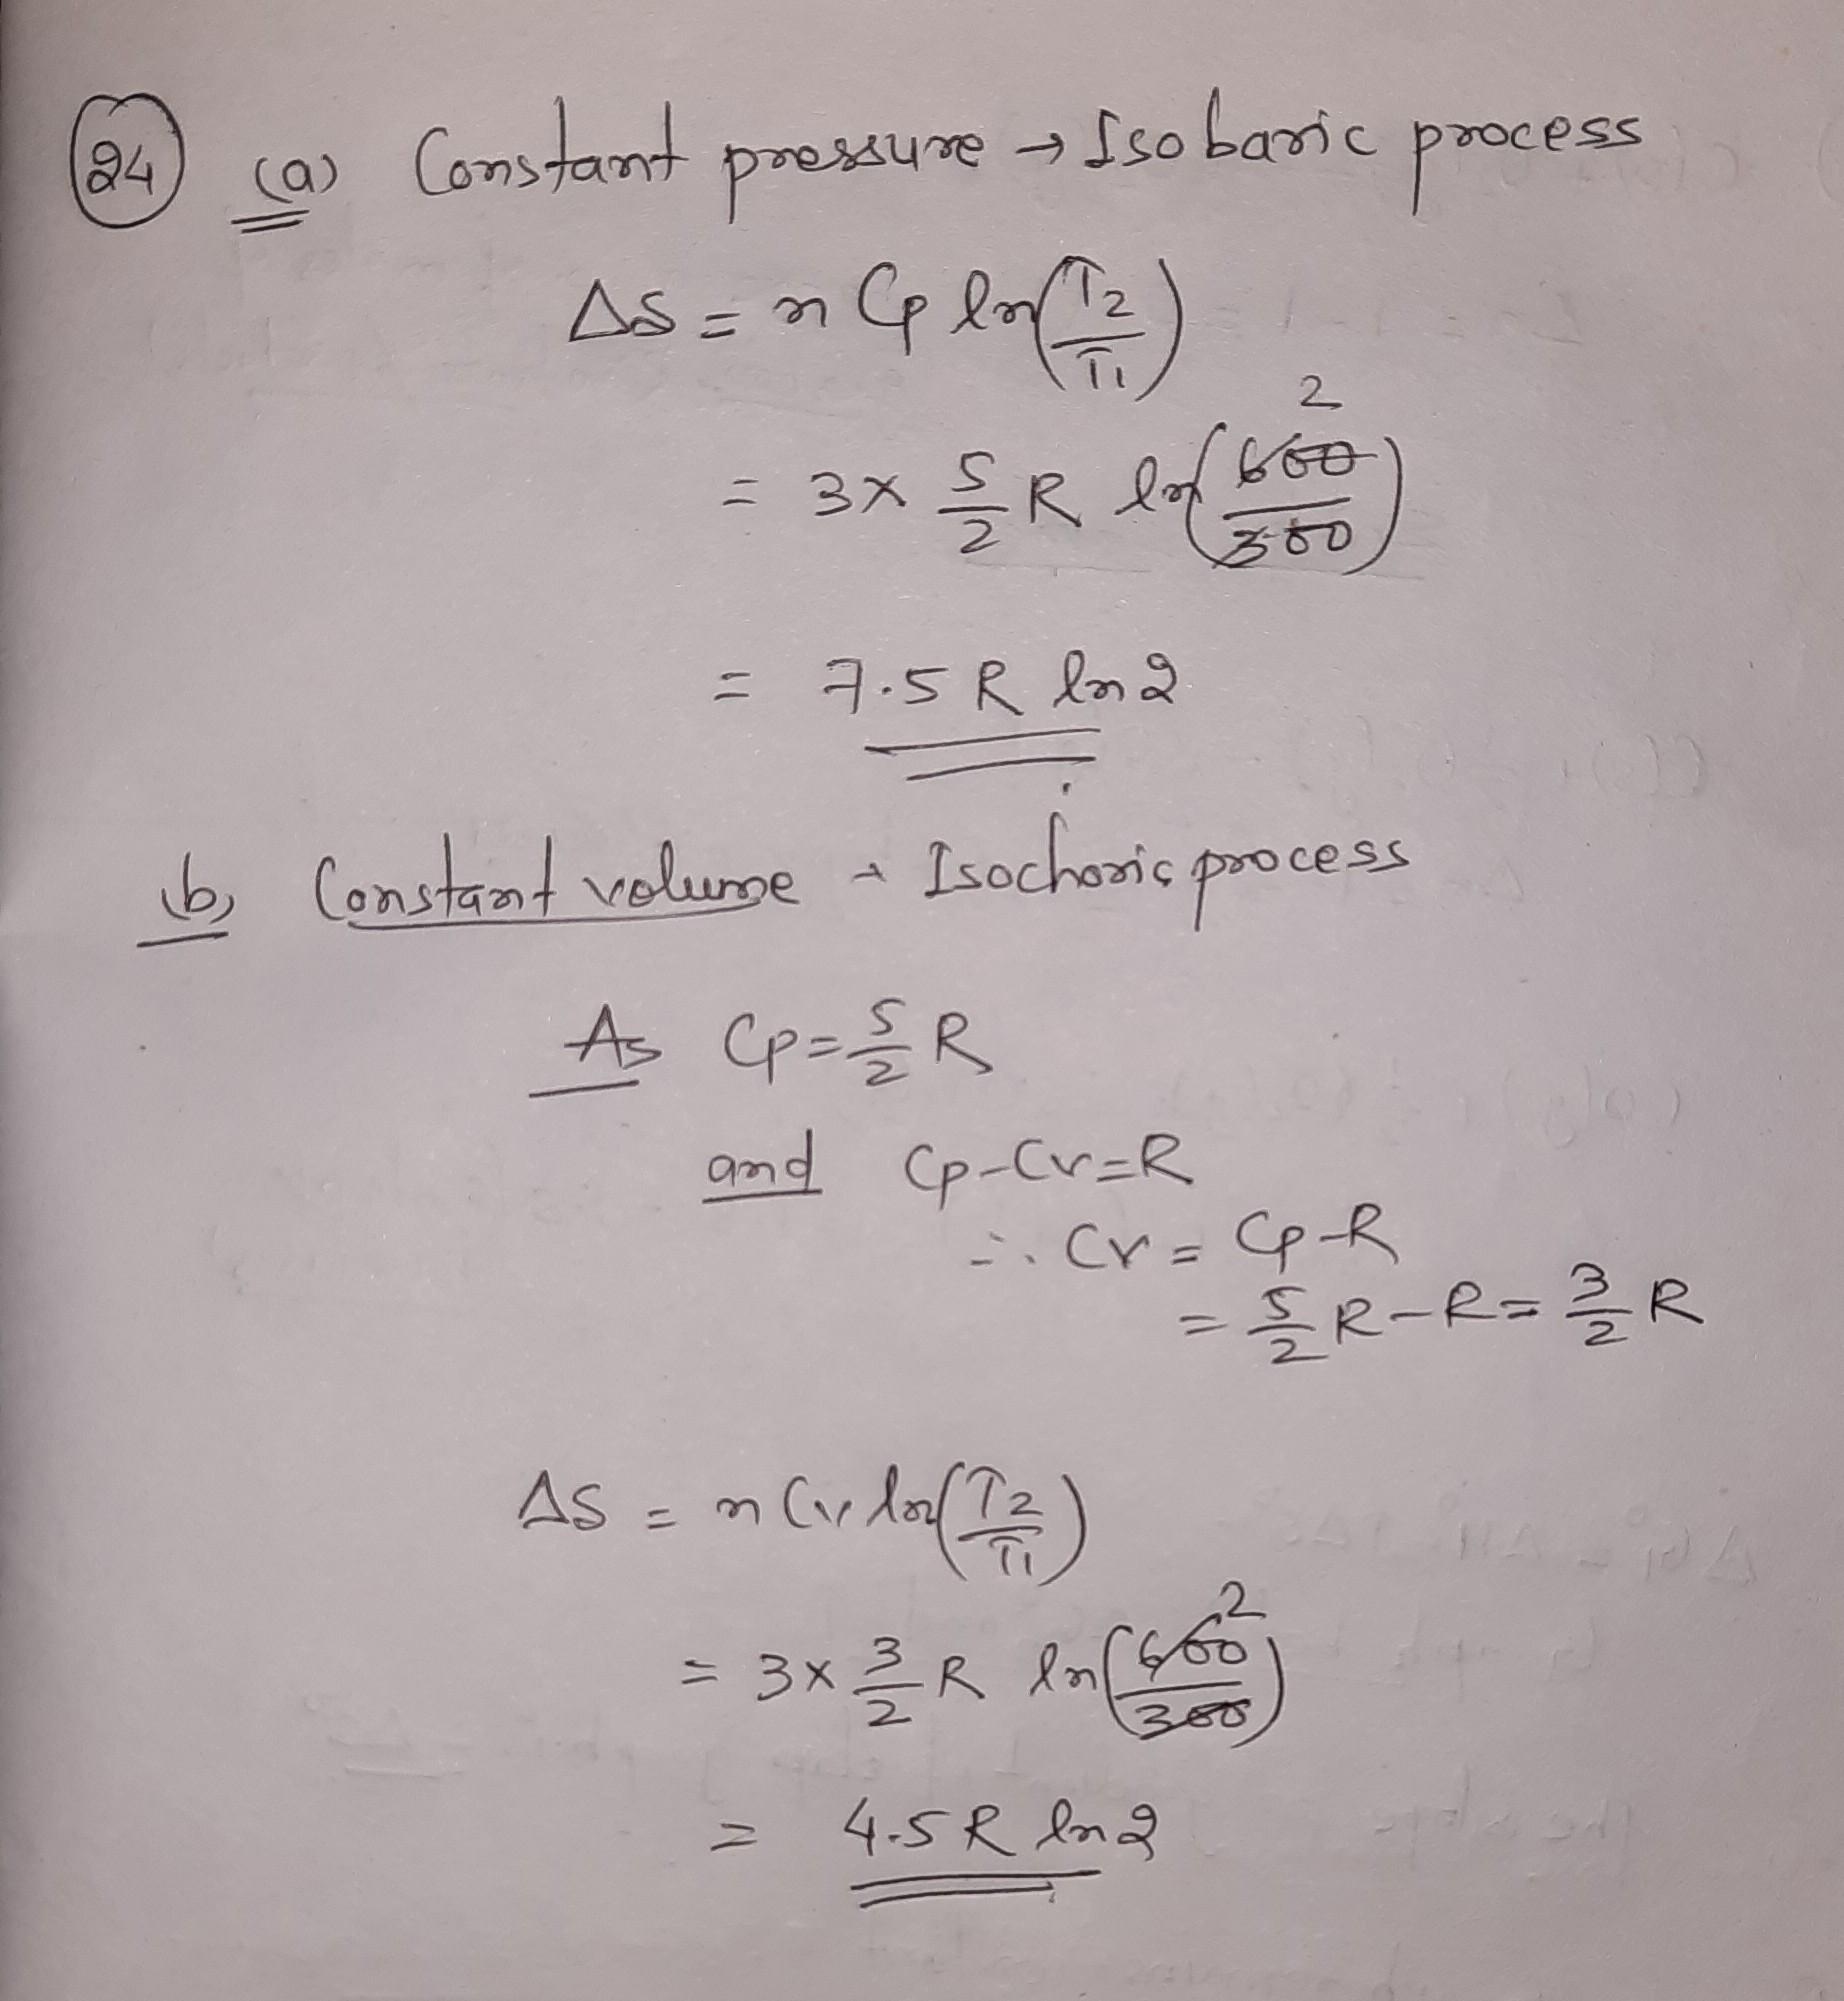 24 (a) Constant pressure → Isobaric process
ΔS = n Cp ln(T2/T1)
= 3 x 5/2 R ln(600/300) 2
= 7.5 R ln2
(b) Constant volume → Isochoric process
As Cp = 5/2 R
and Cp - Cv = R
∴ Cv = Cp - R
= 5/2 R - R = 3/2 R
ΔS = n Cv ln(T2/T1)
= 3 x 3/2 R ln(600/300) 2
= 4.5 R ln2